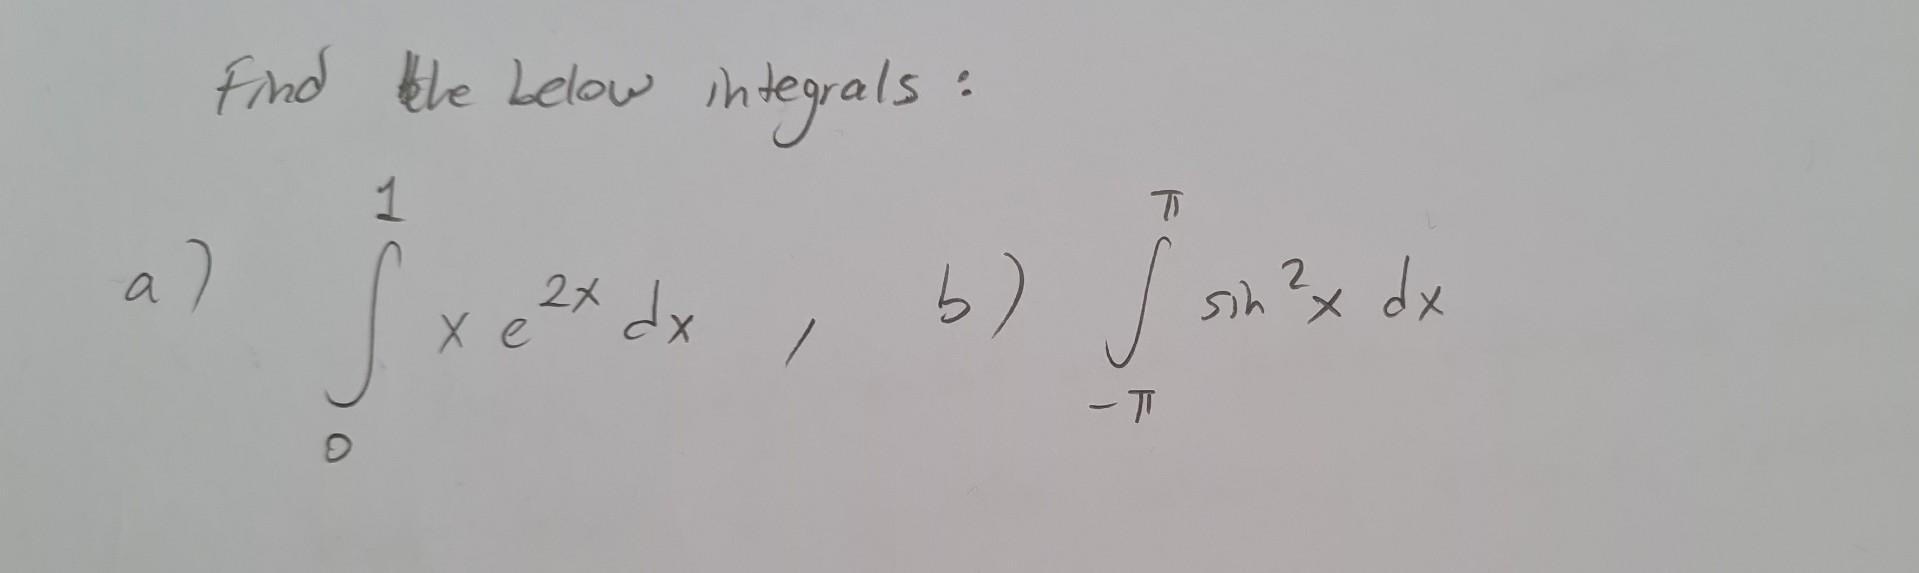 Find the below integrals :
a) ∫₀¹ x e²ˣ dx , b) ∫_{-π}^{π} sin²x dx